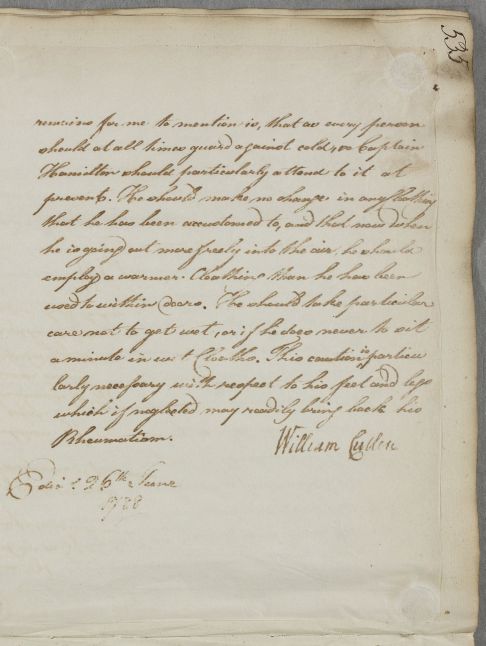 535
remains for me to mention is, that as every person
should at all times guard against cold, so Captain
Hamilton should particularly attend to it at
present. He should make no change in any Cloathing
that he has been accustomed to, and that now when
he is going out more freely into the air, he should
employ a warmer Cloathing than he has been
used to within doors. He should take particular
care not to get wet, or if he does never to sit
a minute in wet Cloaths. This caution is particu
larly necessary with respect to his feet and legs
which if neglected may readily bring back his
Rheumatism.
William Cullen
Edin.r 26th June